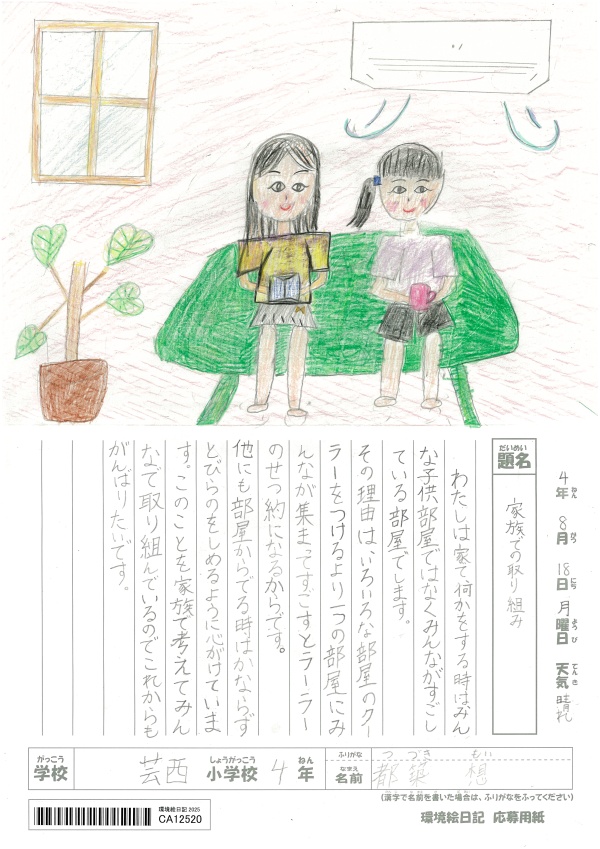 4年 8月 18日 月曜日 天気 晴れ
ねん がつ にち ようび てんき
だいめい
題名
家族での取り組み
わたしは家で何かをする時は、みん
な子供部屋ではなくみんながすごし
ている部屋でします。
その理由は、いろいろな部屋のクー
ラーをつけるより一つの部屋にみ
んなが集まってすごすとラーラー
のせつ約になるからです。
他にも部屋からでる時はかならず
とびらのをしめるように心がけていま
す。このことを家族で考えてみん
なで取り組んでいるのでこれからも
がんばりたいです。
がっこう
学校
芸西
しょうがっこう
小学校
4
ねん
年
ふりがな
つづき もい
なまえ
名前
都築 想
(漢字で名前を書いた場合は、ふりがなをふってください)
環境絵日記 2025
CA12520
環境絵日記 応募用紙